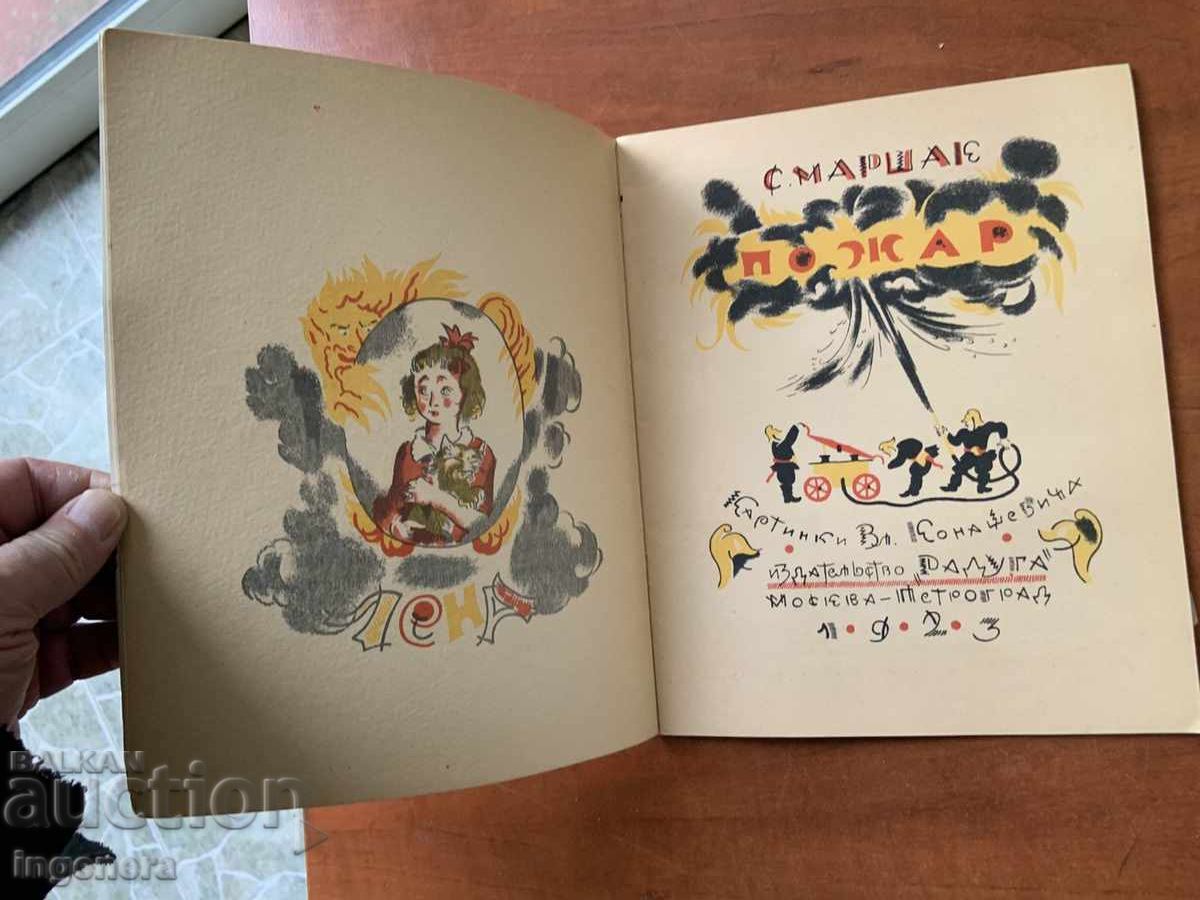 ЛЕНА
С. МАРШАК
ПОЖАР
КАРТИНКИ ВЛ. КОНАШЕВИЧА
ИЗДАТЕЛЬСТВО "РАДУГА"
МОСКВА-ПЕТРОГРАД
1•9•2•3
BALKAN
auction
ingenera